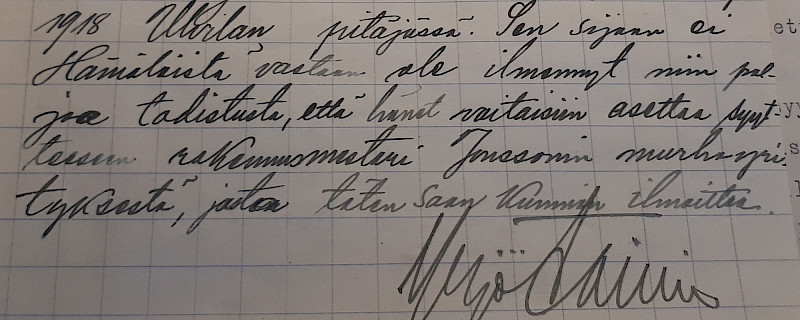 1918 Uurlan pitäjässä. Sen sijaan ei
Hämäläistä vastaan ole ilmennyt niin pal-
joa todistusta, että hänet voitaisiin asettaa syyt-
teeseen rakennusmestari Jonssonin murhayri-
tyksestä, jota täten saan kunnian ilmoittaa.
Yrjö
et
yy
s